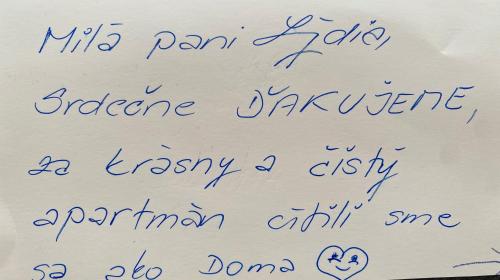 Milá pani Lýdia,
Srdečne ĎAKUJEME,
za krásny a čistý
apartmán cítili sme
sa ako Doma